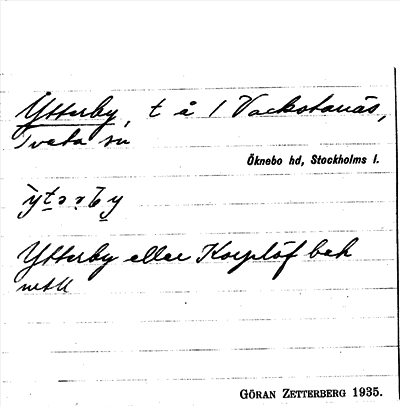 Ytterby, t å 1 Vackstanäs,
Tveta sn
Öknebo hd, Stockholms l.
Ytterby eller
mtl
GÖRAN ZETTERBERG 1935.